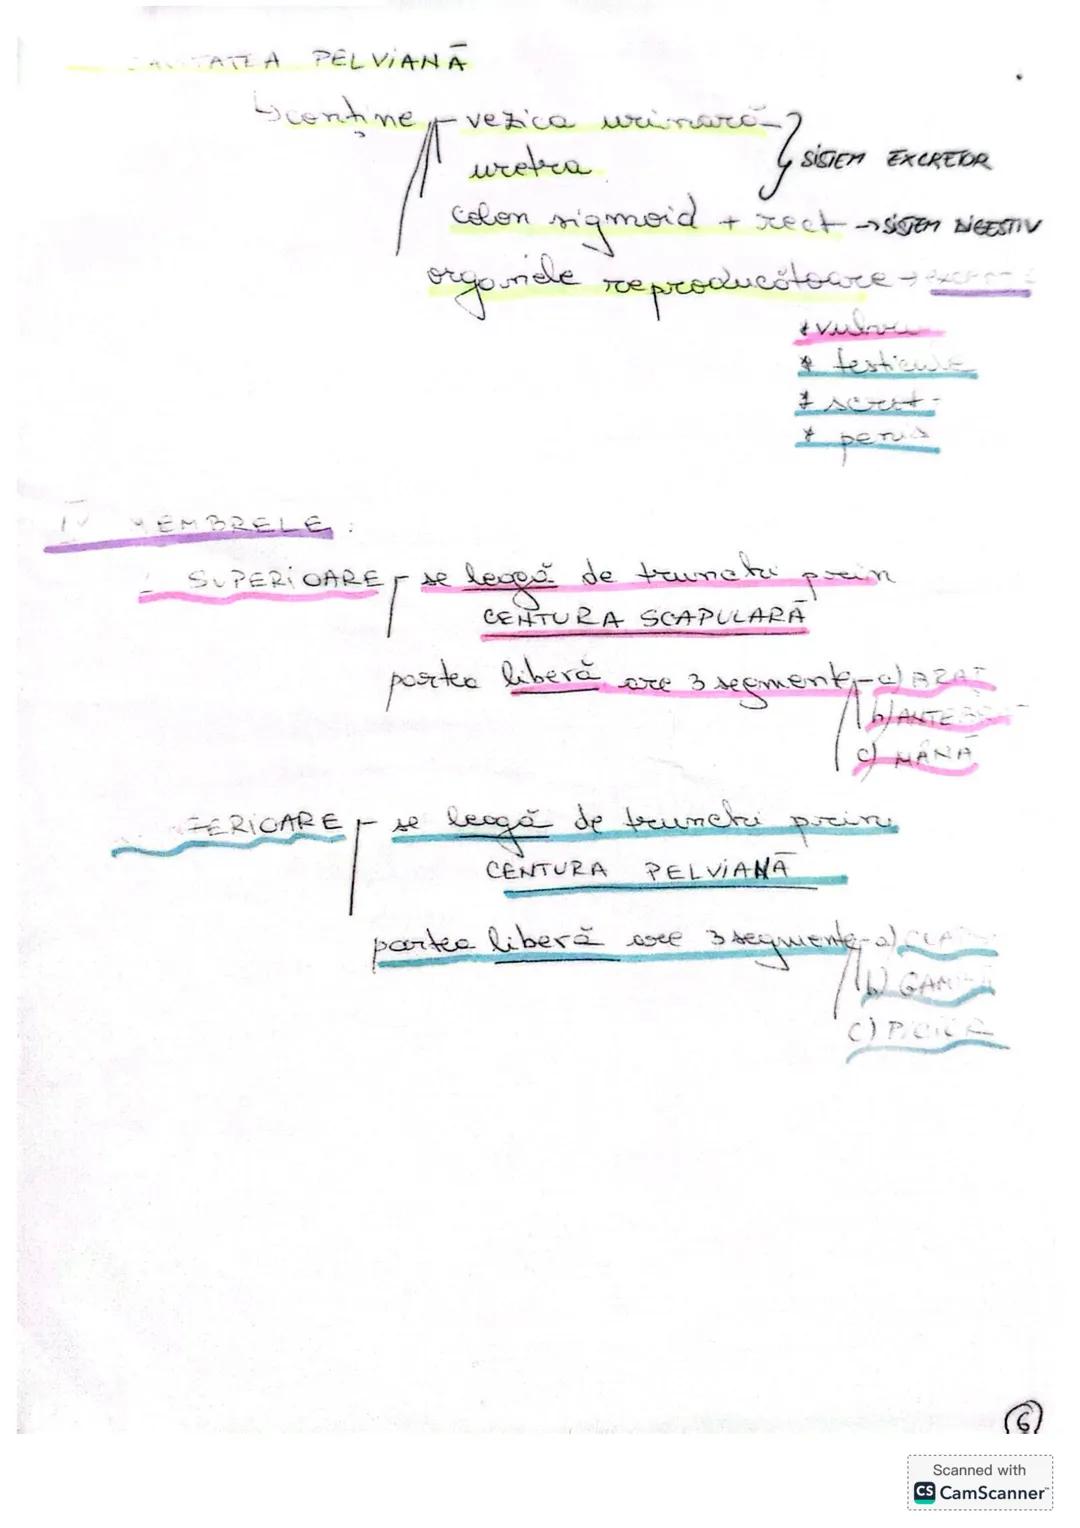 CAVITATEA PELVIANĂ
↳ conține - vezica urinară
uretra
SISTEM EXCRETOR
colon sigmoid + rect → SISTEM DIGESTIV
organele reproducătoare →
* vulva
* testicule
* scrot
* penis
IV MEMBRELE:
- SUPERIOARE - se leagă de trunchi prin
CENTURA SCAPULARĂ
partea liberă are 3 segmente - a) BRAȚ
b) ANTEBRAȚ
c) MÂNĂ
FERIOARE - se leagă de trunchi prin
CENTURA PELVIANĂ
partea liberă are 3 segmente - a)
b) GAMBĂ
c) PICIOR
6
Scanned with
CS CamScanner